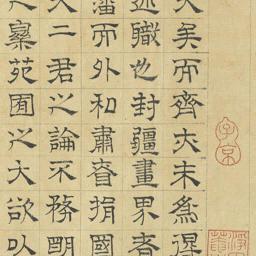 失矣而齊亦未為得
述職也封疆畫界者
藩而外私肅昚捐國
二君之論不務明
之樂苑囿之大欲以
子京